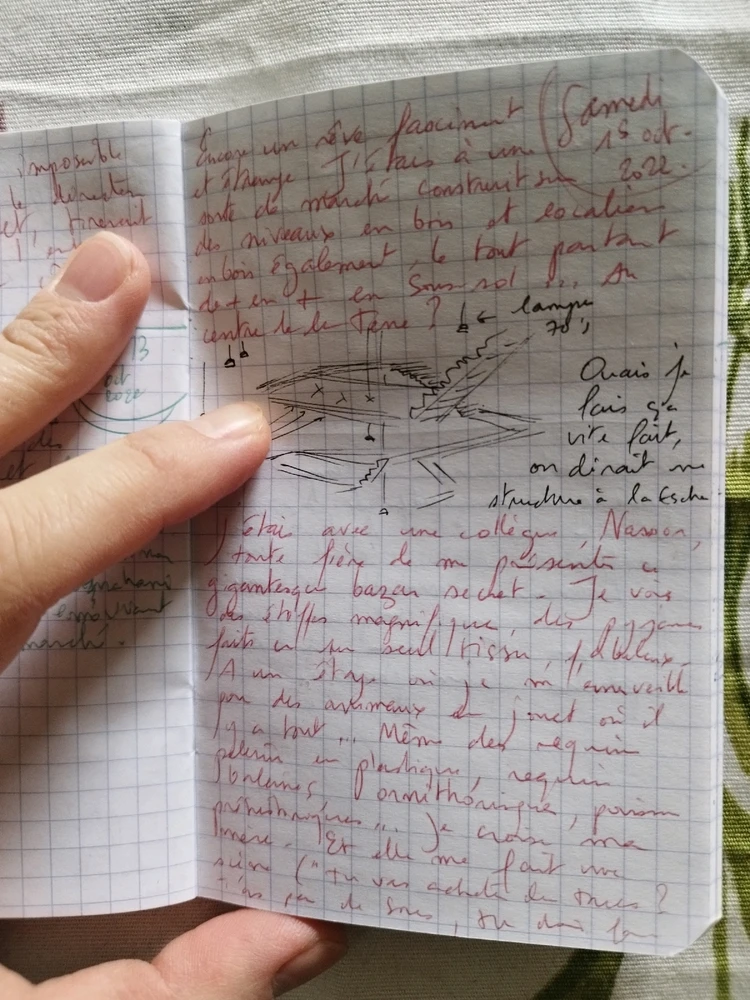 imposible
le
et,
13
oct
2022
marché.
Samedi
15 oct.
2022.
Encore un rêve fascinant
et étrange. J'étais à une
sorte de marché construit sur
des niveaux en bois et escaliers
en bois également, le tout partant
de + en + en sous-sol ... Au
centre de la Terre ?
← lampe
70's
Ouais je
fais ça
vite fait,
on dirait une
structure à la Escher
J'étais avec une collègue,
toute fière de me présenter ce
gigantesque bazar secret. Je vois
des étoffes magnifique, des pyjamas
faits en un seul tissu, fabuleux.
A un étage où je m'émerveille
pour des animaux en jouet où il
y a tout ... Même des requin
pèlerin en plastique, requin
baleines, ornithorinque, poisson
préhistoriques ... Je croise ma
mère. Et elle me fait une
scène ("tu vas acheter des trucs ?
t'as pas de sous, tu dois